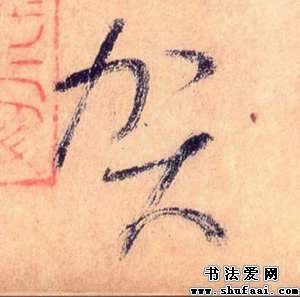 贺
书法爱网
www.shufaai.com